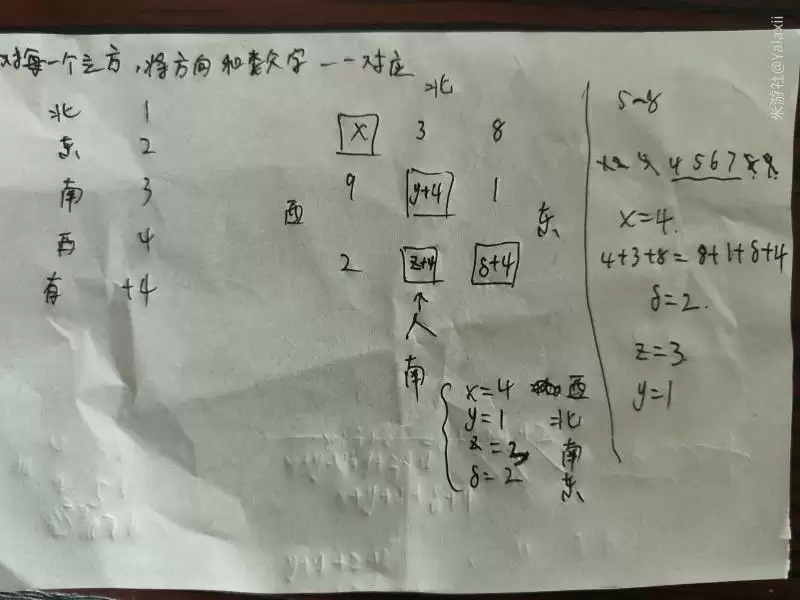 对每一个立方，将方向和数字一一对应
北 1
东 2
南 3
西 4
有 +4
北
x 3 8
9 y+4 1
西
东
2 z+4 δ+4
人
南
x=4 西
y=1 北
z=3 南
δ=2 东
5~8
4 5 6 7
x=4.
4+3+8=8+1+δ+4
δ=2.
z=3
y=1
米游社@Yalaxii